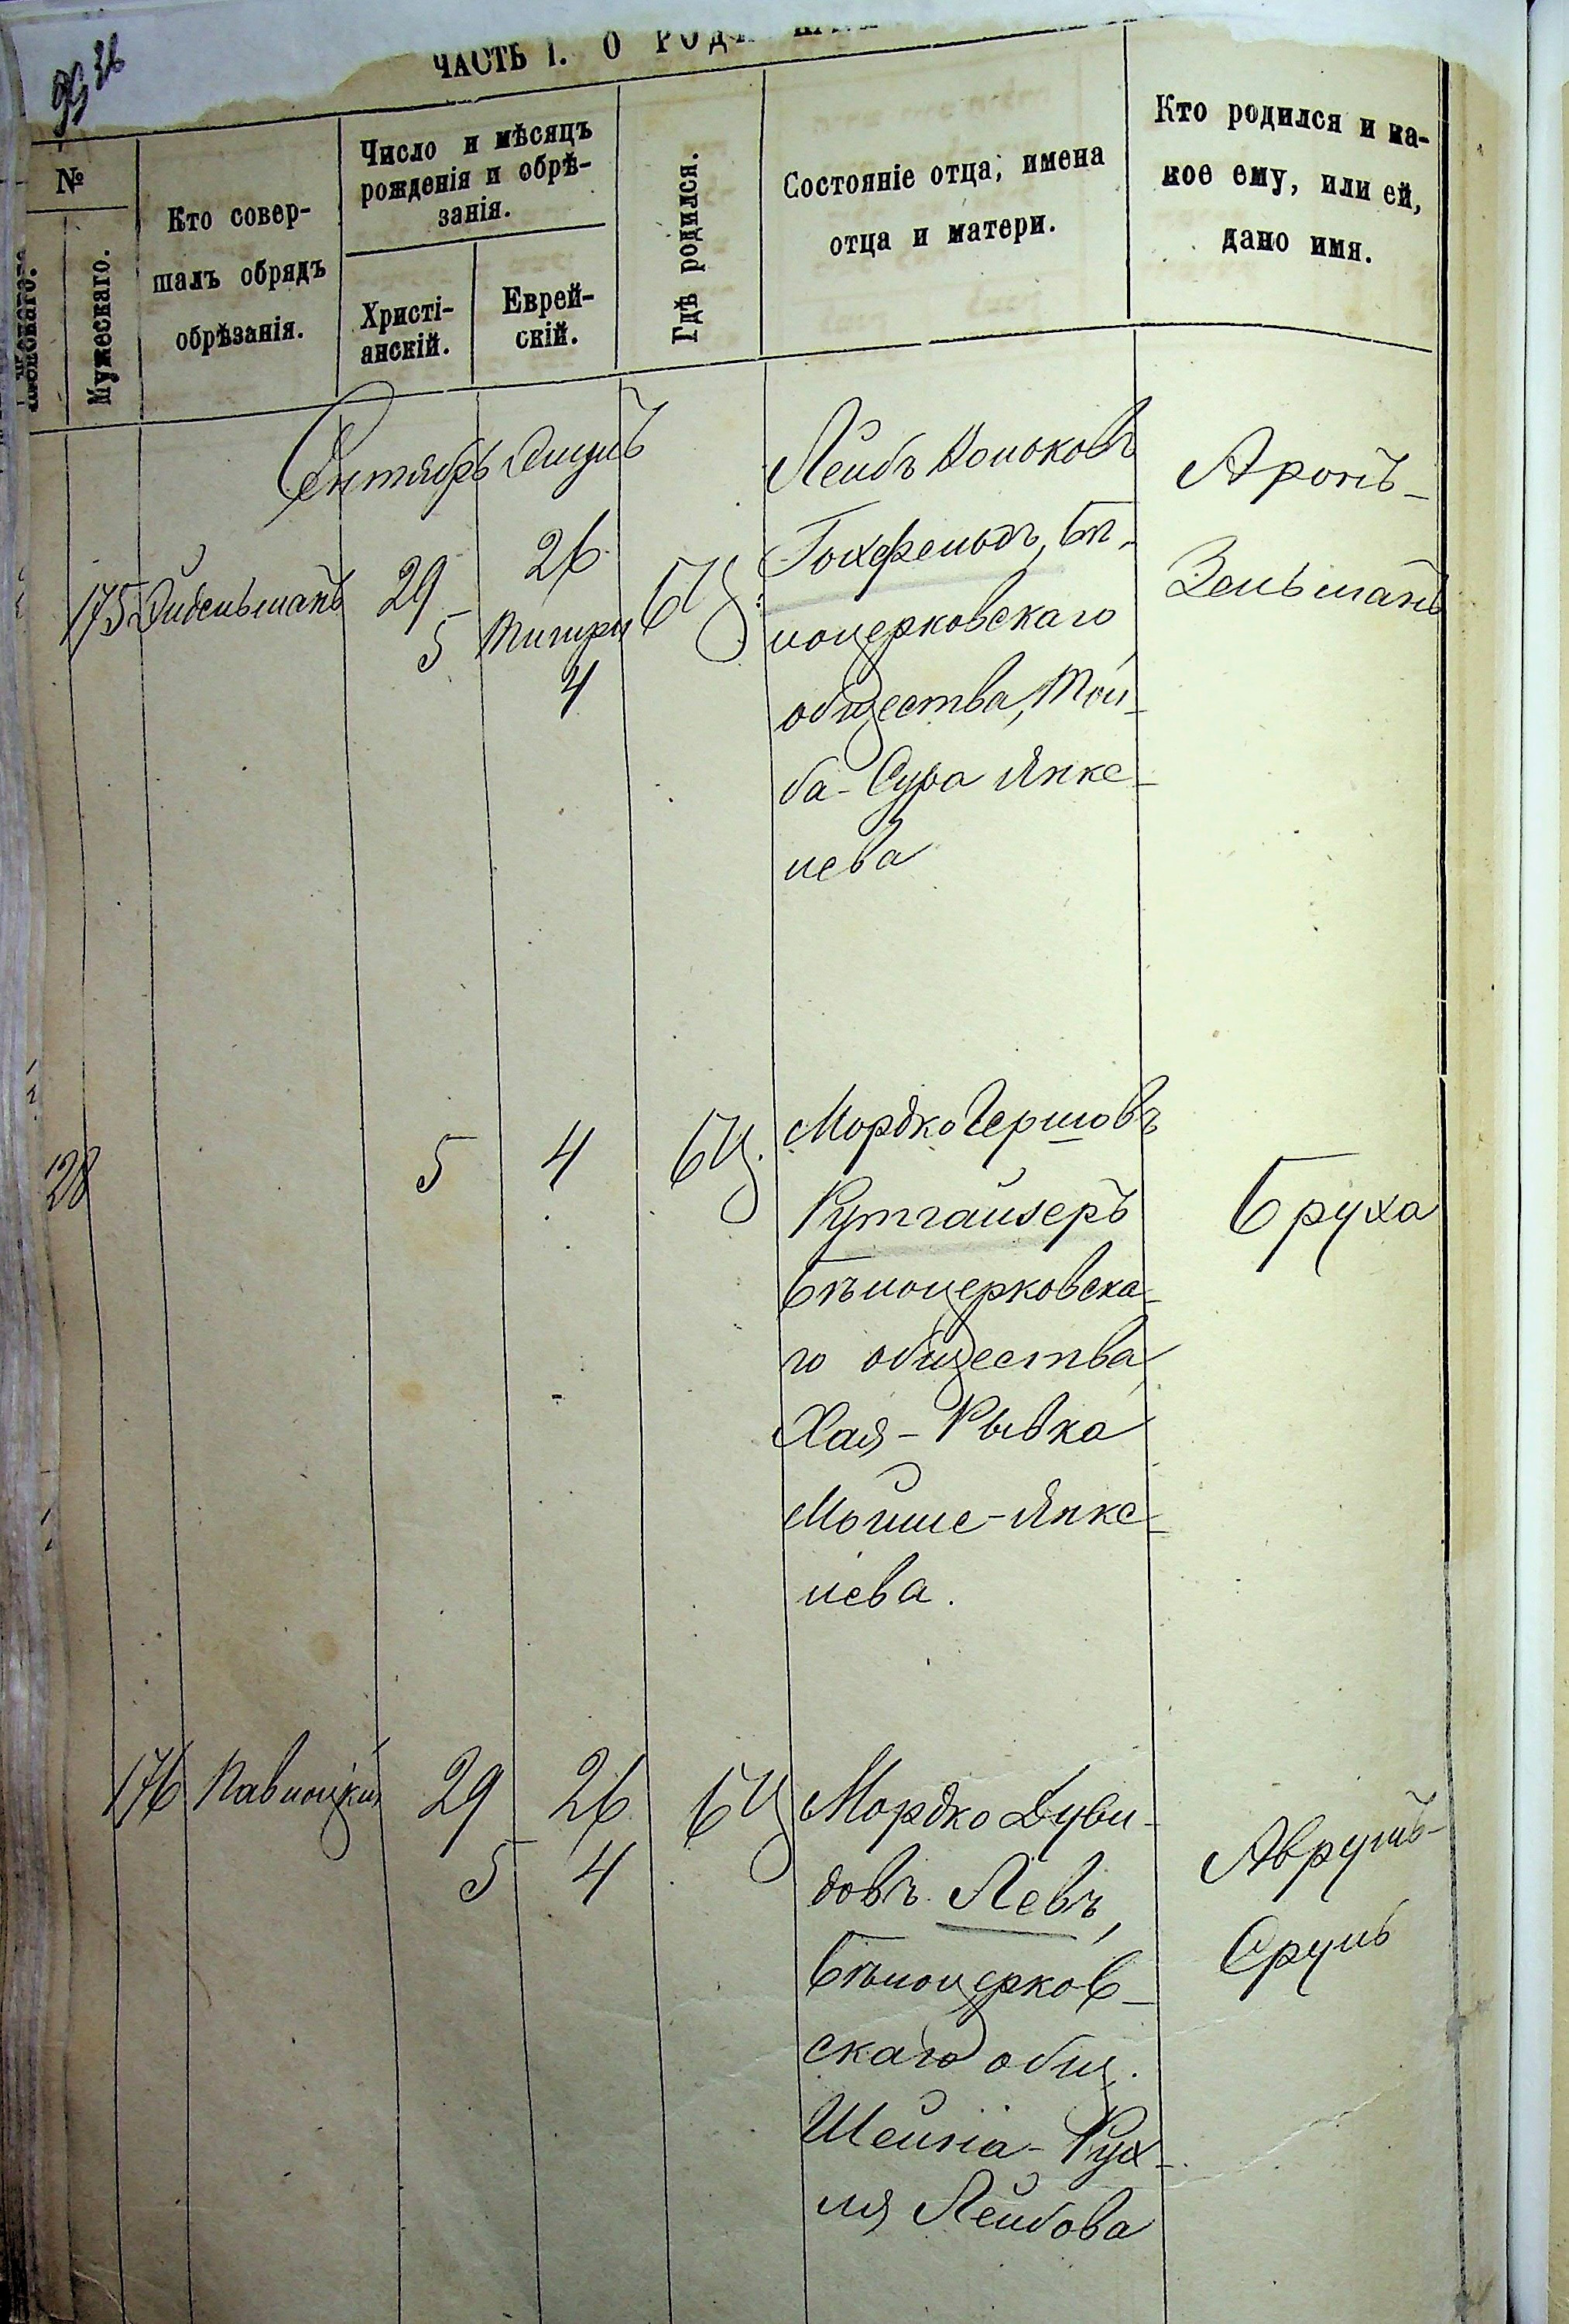 36
ЧАСТЬ I. О РОД
№
Мужескаго.
Кто совер-
шалъ обрядъ
обрѣзанія.
Число и мѣсяцъ
рожденія и обрѣ-
занія.
Христі-
анскій.
Еврей-
скій.
Гдѣ родился.
Состояніе отца, имена
отца и матери.
Кто родился и ка-
кое ему, или ей,
дано имя.
Сентябрь Элулъ
175 Эйдельманъ
29
5
26
Тишри
4
БЦ.
Лейбъ
Гохфельдъ, Бѣ-
лоцерковскаго
общества, Той-
ба-Сура Янке-
лева
Аронъ-
Зельманъ
128
5
4
БЦ.
Мордко Гершовъ
Рутгайзеръ
Бѣлоцерковска-
го общества
Хая-Рывка
Мойше-Янке-
лева.
Бруха
176
29
5
26
4
БЦ
Мордко Дуви-
довъ Левъ,
Бѣлоцерков-
скаго общ.
Шейна-Рух-
ля Лейбова
Аврумъ-
Сруль